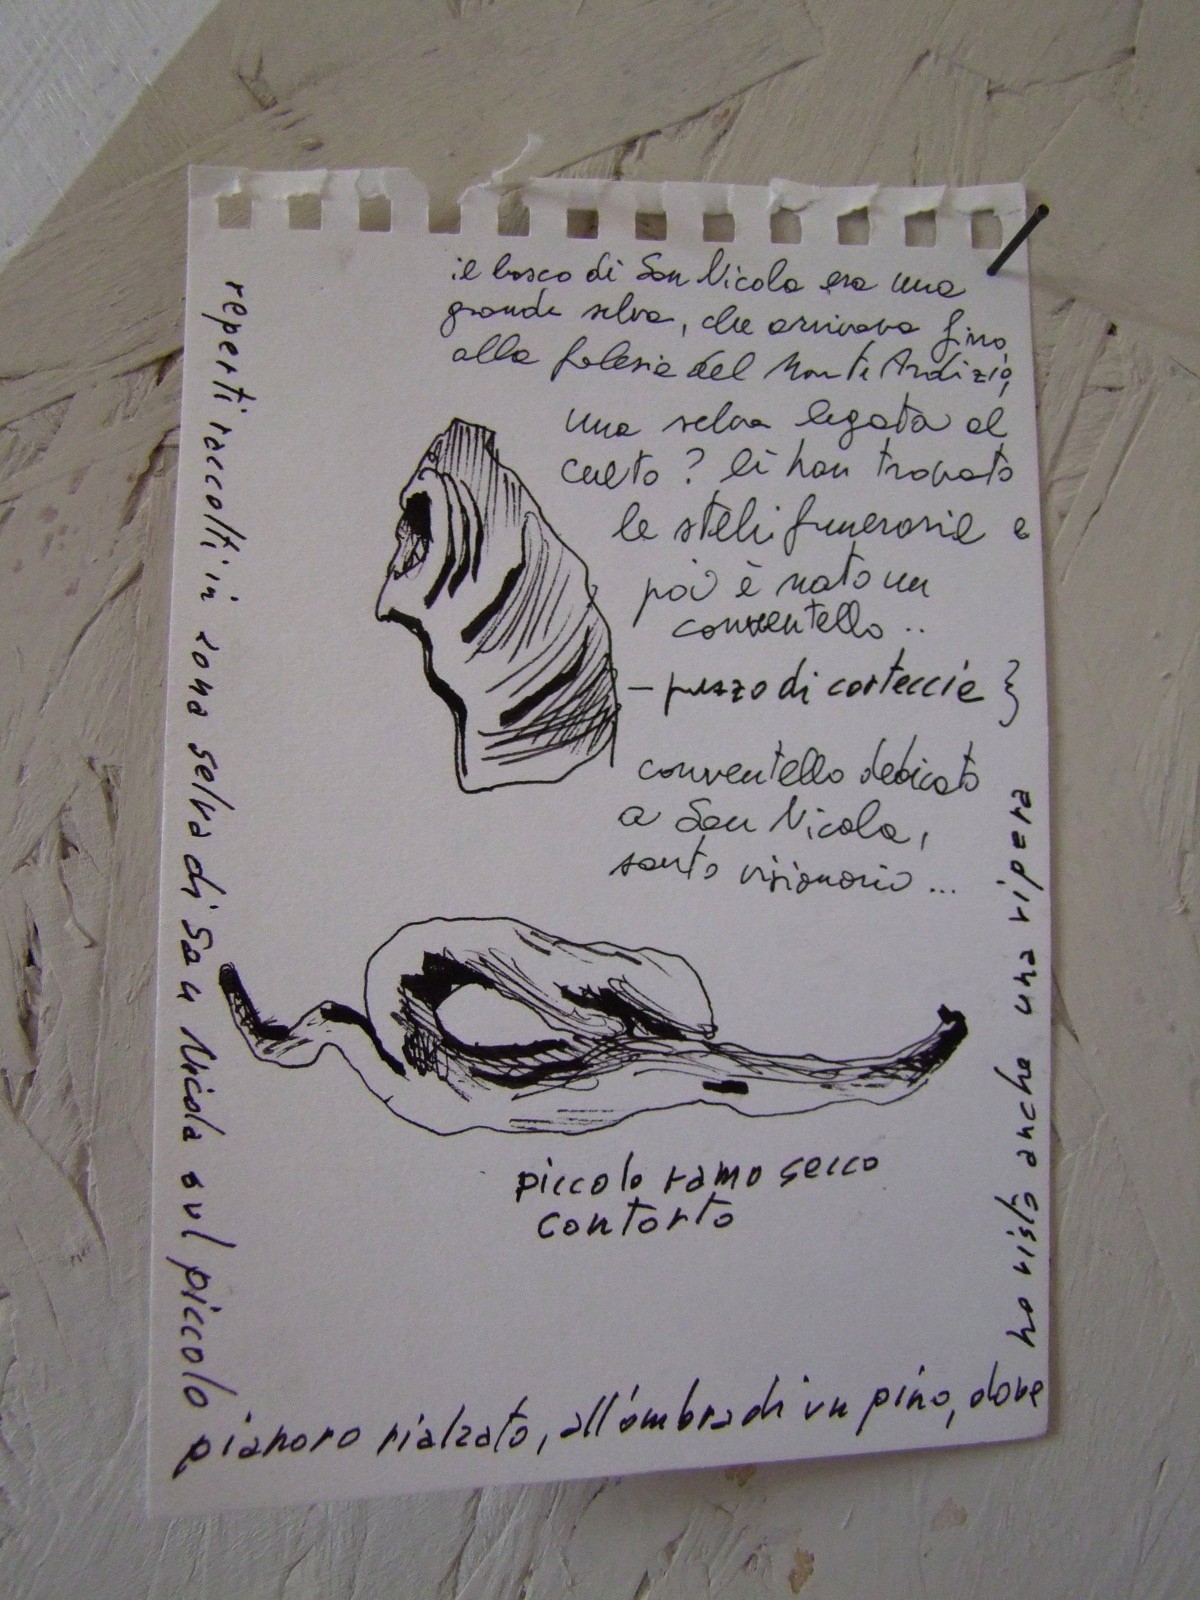 il bosco di San Nicola era una
grande selva, che arrivava fino
alla falesia del Monte Ardizio,
una selva legata al
culto? lì han trovato
le steli funerarie e
poi è nato un
conventello..
– pezzo di corteccia }
conventello dedicato
a San Nicola,
santo visionario...
piccolo ramo secco
contorto
reperti raccolti in zona selva di San Nicola sul piccolo
pianoro rialzato, all'ombra di un pino, dove
ho visto anche una vipera